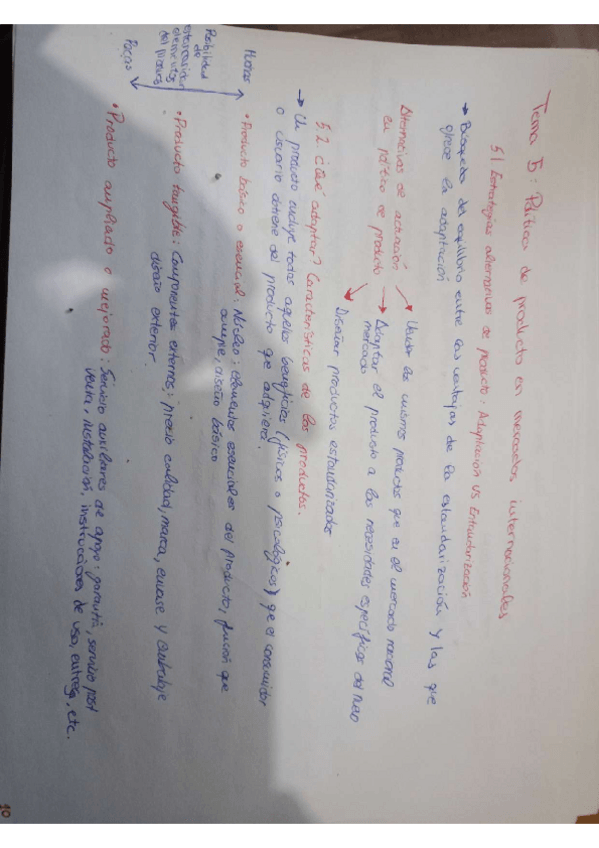 Tema 5: Política de producto en mercados internacionales
5.1. Estrategias alternativas de producto: Adaptación VS Estandarización
→ Búsqueda del equilibrio entre las ventajas de la estandarización y las que
ofrece la adaptación
Alternativas de actuación
en política de producto
→ Vender los mismos productos que en el mercado nacional
→ Adaptar el producto a las necesidades específicas del nuevo
mercado
Diseñar productos estandarizados
5.2 ¿Qué adaptar? Características de los productos.
→ Un producto incluye todos aquellos beneficios (físicos o psicológicos) que el consumidor
o usuario obtiene del producto que adquiera.
• Producto básico o esencial: Núcleo: elementos esenciales del producto, función que
cumple, diseño básico
• Producto tangible: Componentes externos: precio calidad, marca, envase y embalaje
diseño exterior.
• Producto ampliado o mejorado: Servicio auxiliares de apoyo: garantía, servicio post
venta, instalación, instrucciones de uso, entrega, etc.
Posibilidad
de
estandarizar
elementos
del producto
Pocas
10